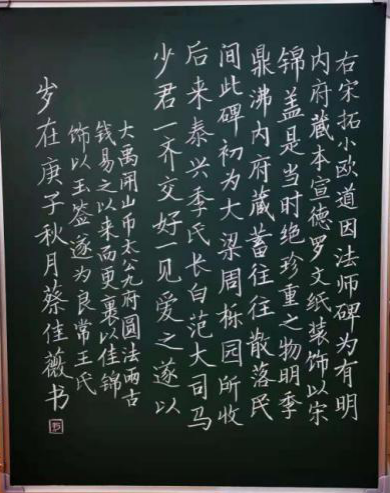 右宋拓小欧道因法师碑为有明
内府藏本宣德罗文纸装饰以宋
锦盖是当时绝珍重之物明季
鼎沸内府藏蓄往往散落民
间此碑初为大梁周栎园所收
后来泰兴季氏长白范大司马
少君一齐交好一见爱之遂以
大禹开山币太公九府圆法两古
钱易之以来而更裹以佳锦
饰以玉签遂为良常王氏
岁在庚子秋月蔡佳薇书